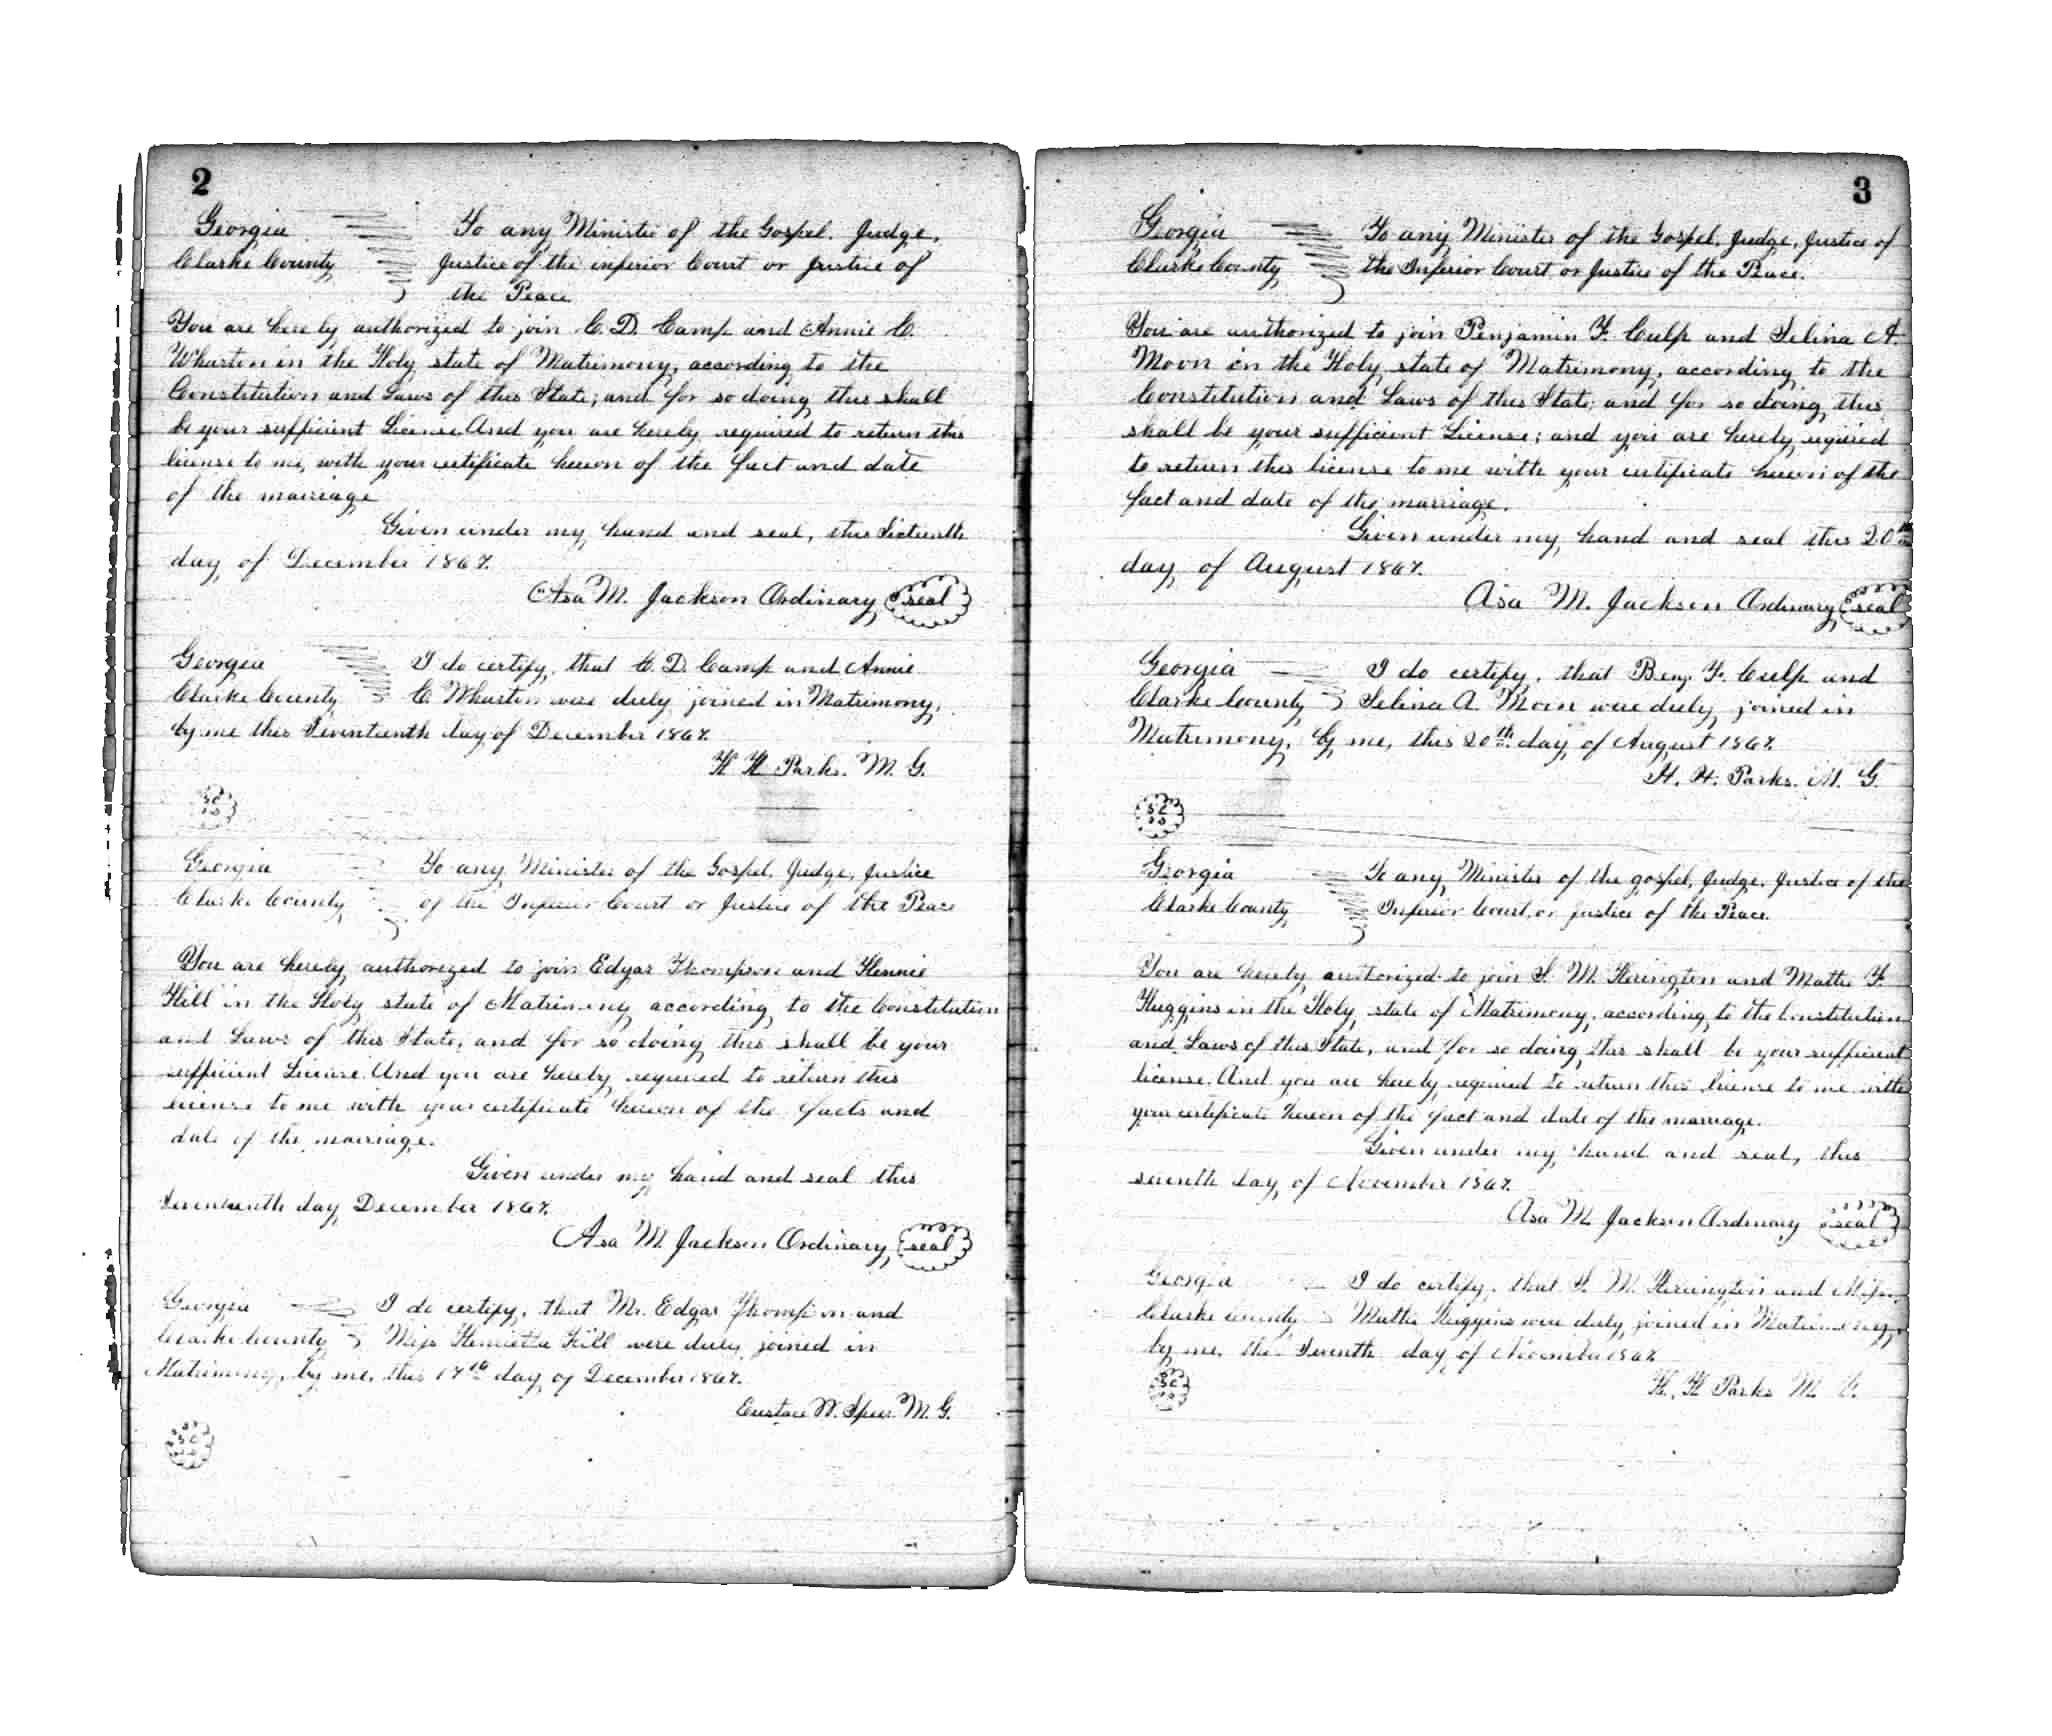 2
Georgia To any Minister of the Gospel. Judge,
Clarke County Justice of the inferior Court or Justice of
the Peace
You are hereby authorized to join C. D. Camp and Annie C.
Wharton in the Holy state of Matrimony, according to the
Constitution and Laws of this State; and for so doing this shall
be your sufficient License. And you are hereby required to return this
license to me, with your certificate hereon of the fact and date
of the marriage
Given under my hand and seal, this Sixteenth
day of December 1867.
Asa M. Jackson Ordinary seal
Georgia I do certify, that C. D. Camp and Annie
Clarke County C. Wharton were duly joined in Matrimony,
by me this Seventeenth day of December 1867.
H H Parks. M. G.
Georgia To any Minister of the Gospel, Judge, Justice
Clarke County of the Inferior Court or Justice of the Peace
You are hereby authorized to join Edgar Thompson and Hennie
Hill in the Holy state of Matrimony according to the Constitution
and Laws of this State, and for so doing this shall be your
sufficient License. And you are hereby required to return this
license to me with your certificate hereon of the facts and
date of the marriage.
Given under my hand and seal this
Seventeenth day December 1867.
Asa M. Jackson Ordinary seal
Georgia I do certify, that Mr. Edgar Thompson and
Clarke County Miss Henrietta Hill were duly joined in
Matrimony, by me, this 17th day of December 1867.
Eustace W. Speer M. G.
3
Georgia To any Minister of the Gospel, Judge, Justice of
Clarke County the Inferior Court or Justice of the Peace.
You are authorized to join Benjamin F. Culp and Selina A.
Moon in the Holy state of Matrimony, according to the
Constitution and Laws of this State; and for so doing this
shall be your sufficient License; and you are hereby required
to return this license to me with your certificate hereon of the
fact and date of the marriage.
Given under my hand and seal this 20th
day of August 1867.
Asa M. Jackson Ordinary seal
Georgia I do certify, that Benj. F. Culp and
Clarke County Selina A. Moon were duly joined in
Matrimony, by me, this 20th day of August 1867.
H. H. Parks. M. G.
Georgia To any Minister of the gospel, Judge, Justice of the
Clarke County Inferior Court, or justice of the Peace.
You are hereby authorized to join S. M. Herington and Mattie F.
Huggins in the Holy state of Matrimony, according to the Constitution
and Laws of this State, and for so doing this shall be your sufficient
license. And you are hereby required to return this license to me with
your certificate hereon of the fact and date of the marriage.
Given under my hand and seal, this
seventh day of November 1867.
Asa M Jackson Ordinary seal
Georgia I do certify, that S. M. Herington and Miss
Clarke County Mattie Huggins were duly joined in Matrimony,
by me, the Seventh day of November 1867.
H. H Parks M. G.